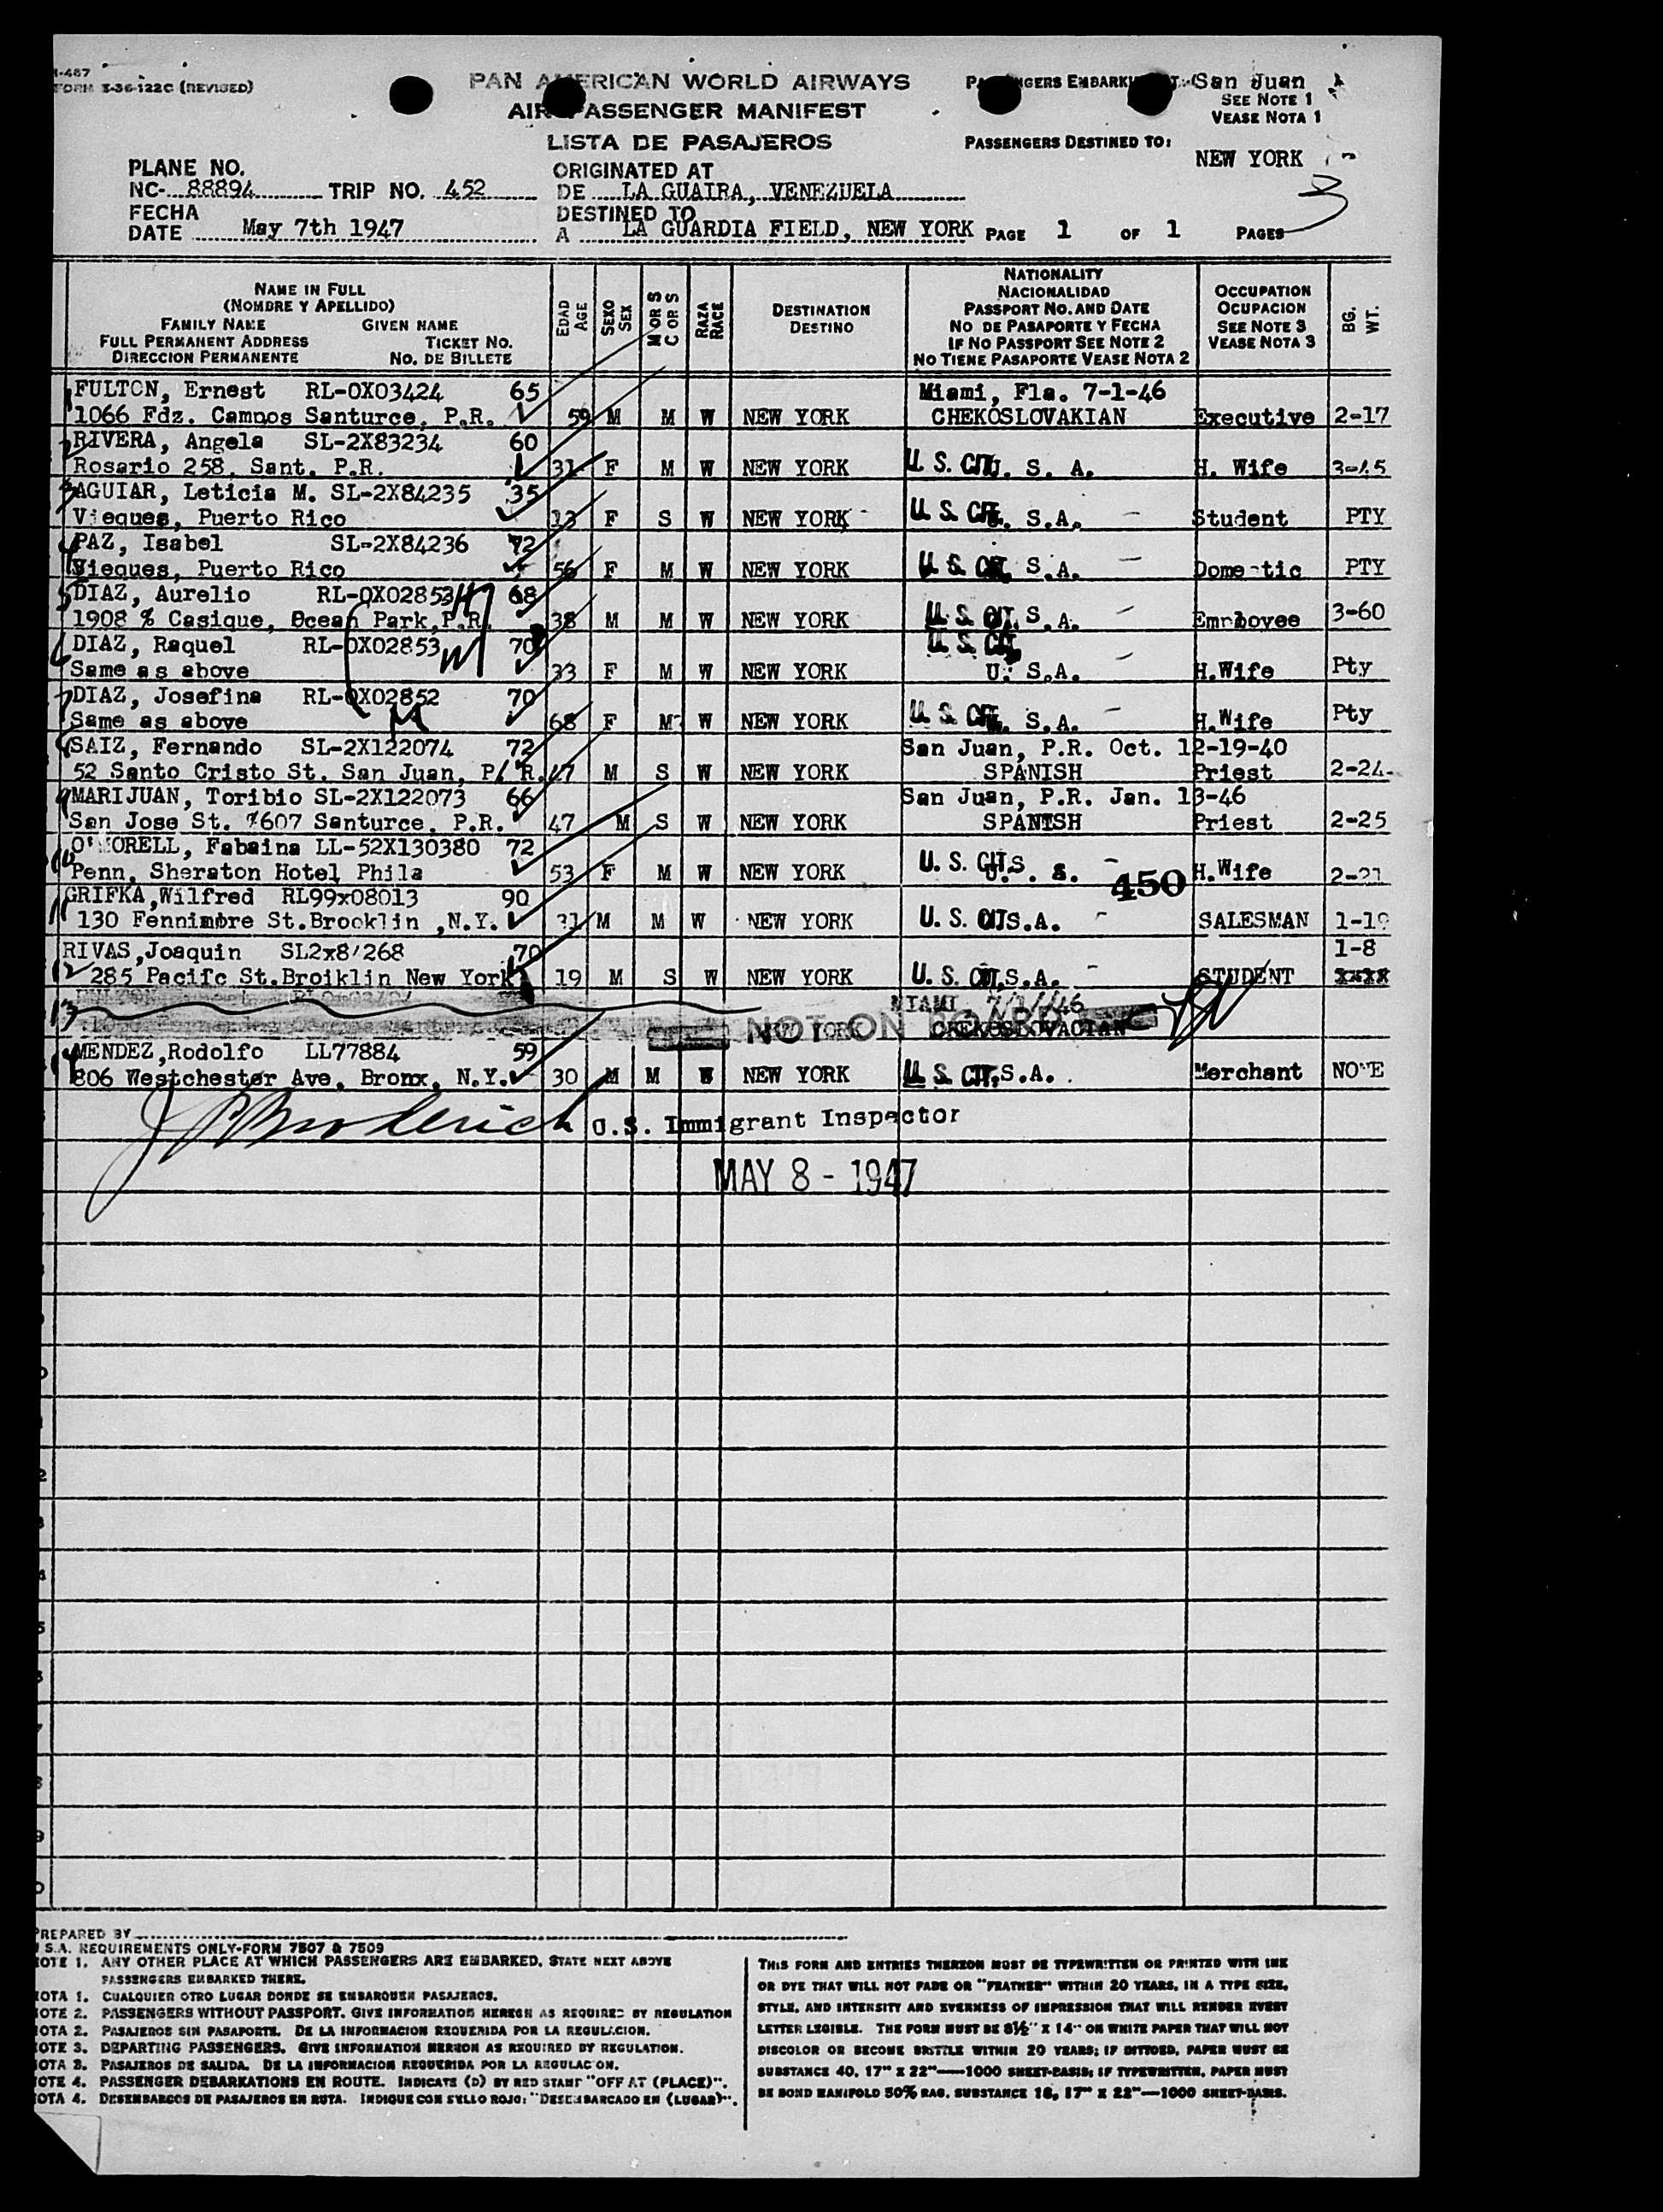 I-467
FORM X-36-122C (REVISED)
PAN AMERICAN WORLD AIRWAYS
AIR PASSENGER MANIFEST
LISTA DE PASAJEROS
San Juan
SEE NOTE 1
VEASE NOTA 1
PASSENGERS DESTINED TO:
NEW YORK
3
PLANE NO.
NC- 88894 TRIP NO. 452
FECHA
DATE May 7th 1947
ORIGINATED AT
DE LA GUAIRA, VENEZUELA
DESTINED TO
A LA GUARDIA FIELD, NEW YORK PAGE 1 OF 1 PAGES
NAME IN FULL
(NOMBRE Y APELLIDO)
FAMILY NAME GIVEN NAME
FULL PERMANENT ADDRESS TICKET NO.
DIRECCION PERMANENTE NO. DE BILLETE
EDAD AGE
SEXO SEX
M OR S C OR S
RAZA RACE
DESTINATION
DESTINO
NATIONALITY
NACIONALIDAD
PASSPORT NO. AND DATE
NO DE PASAPORTE Y FECHA
IF NO PASSPORT SEE NOTE 2
NO TIENE PASAPORTE VEASE NOTA 2
OCCUPATION
OCUPACION
SEE NOTE 3
VEASE NOTA 3
BG. WT.
1 FULTON, Ernest RL-OX03424 65 Miami, Fla. 7-1-46
1066 Fdz. Campos Santurce, P.R. 59 M M W NEW YORK CHEKOSLOVAKIAN Executive 2-17
2 RIVERA, Angela SL-2X83234 60
Rosario 258, Sant. P.R. 31 F M W NEW YORK U. S. CIT. U. S. A. H. Wife 3-45
3 AGUIAR, Leticia M. SL-2X84235 35
Vieques, Puerto Rico 13 F S W NEW YORK U. S. CIT. S.A. Student PTY
4 PAZ, Isabel SL-2X84236 72
Vieques, Puerto Rico 56 F M W NEW YORK U. S. CIT. S.A. Domestic PTY
5 DIAZ, Aurelio RL-OX02853 68
1908 % Casique, Ocean Park, P.R. 38 M M W NEW YORK U. S. CIT. S.A. Employee 3-60
6 DIAZ, Raquel RL-OX02853 70 U. S. CIT.
Same as above 33 F M W NEW YORK U. S.A. H.Wife Pty
7 DIAZ, Josefina RL-OX02852 70
Same as above 68 F M W NEW YORK U. S. CIT. S.A. H.Wife Pty
8 SAIZ, Fernando SL-2X122074 72 San Juan, P.R. Oct. 12-19-40
52 Santo Cristo St. San Juan, P. R. 47 M S W NEW YORK SPANISH Priest 2-24
9 MARIJUAN, Toribio SL-2X122073 66 San Juan, P.R. Jan. 13-46
San Jose St. #607 Santurce, P.R. 47 M S W NEW YORK SPANISH Priest 2-25
10 LL-52X130380 72
Penn, Sheraton Hotel Phila 53 F M W NEW YORK U. S. CIT. 450 H.Wife
11 GRIFKA, Wilfred RL99x08013 90
130 Fennimore St. Brooklin, N.Y. 31 M M W NEW YORK U. S. CIT. S.A. SALESMAN
12 RIVAS, Joaquin 70 1-8
285 Pacifc St. Broiklin New York 19 M S W NEW YORK U. S. CIT. S.A. STUDENT
13 MIAMI 7/1/46
NEW YORK NOT ON BOARD CHEKOSLOVACIAN
14 MENDEZ, Rodolfo LL77884 59
806 Westchester Ave, Bronx, N.Y. 30 M M W NEW YORK U. S. CIT. S.A. Merchant NONE
U.S. Immigrant Inspector
MAY 8 - 1947
PREPARED BY
U.S.A. REQUIREMENTS ONLY-FORM 7507 & 7509
NOTE 1. ANY OTHER PLACE AT WHICH PASSENGERS ARE EMBARKED, STATE NEXT ABOVE
PASSENGERS EMBARKED THERE.
NOTA 1. CUALQUIER OTRO LUGAR DONDE SE EMBARQUEN PASAJEROS.
NOTE 2. PASSENGERS WITHOUT PASSPORT. GIVE INFORMATION HEREON AS REQUIRED BY REGULATION
NOTA 2. PASAJEROS SIN PASAPORTE. DE LA INFORMACION REQUERIDA POR LA REGULACION.
NOTE 3. DEPARTING PASSENGERS. GIVE INFORMATION HEREON AS REQUIRED BY REGULATION.
NOTA 3. PASAJEROS DE SALIDA. DE LA INFORMACION REQUERIDA POR LA REGULACION.
NOTE 4. PASSENGER DEBARKATIONS EN ROUTE. INDICATE (D) BY RED STAMP "OFF AT (PLACE)".
NOTA 4. DESEMBARCOS DE PASAJEROS EN RUTA. INDIQUE CON SELLO ROJO: "DESEMBARCADO EN (LUGAR)".
THIS FORM AND ENTRIES THEREON MUST BE TYPEWRITTEN OR PRINTED WITH INK
OR DYE THAT WILL NOT FADE OR "FEATHER" WITHIN 20 YEARS, IN A TYPE SIZE,
STYLE, AND INTENSITY AND EVENNESS OF IMPRESSION THAT WILL RENDER EVERY
LETTER LEGIBLE. THE FORM MUST BE 8½" X 14" ON WHITE PAPER THAT WILL NOT
DISCOLOR OR BECOME BRITTLE WITHIN 20 YEARS; IF DITTOED, PAPER MUST BE
SUBSTANCE 40, 17" X 22"—1000 SHEET-BASIS; IF TYPEWRITTEN, PAPER MUST
BE BOND MANIFOLD 50% RAG, SUBSTANCE 18, 17" X 22"—1000 SHEET-BASIS.